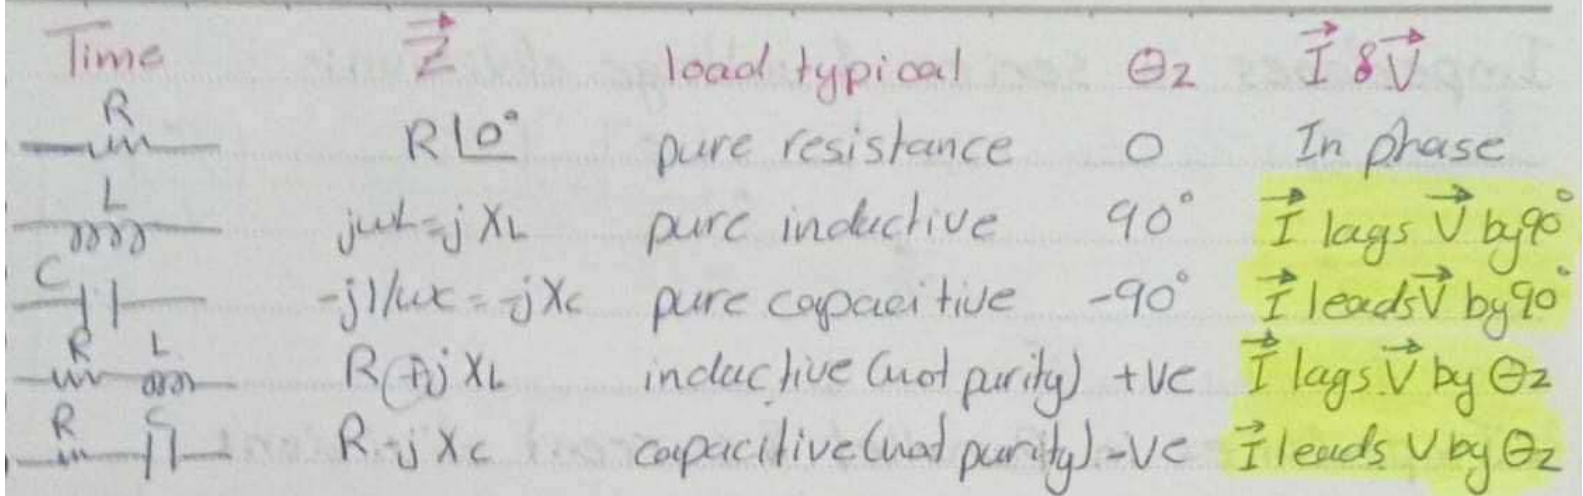 Time Z load typical θz I & V
R R∠0° pure resistance 0 In phase
L jωL=jXL pure inductive 90° I lags V by 90°
C -j1/ωc=-jXc pure capacitive -90° I leads V by 90°
R L R+jXL inductive (not purity) +ve I lags V by θz
R C R-jXc capacitive (not purity) -ve I leads V by θz